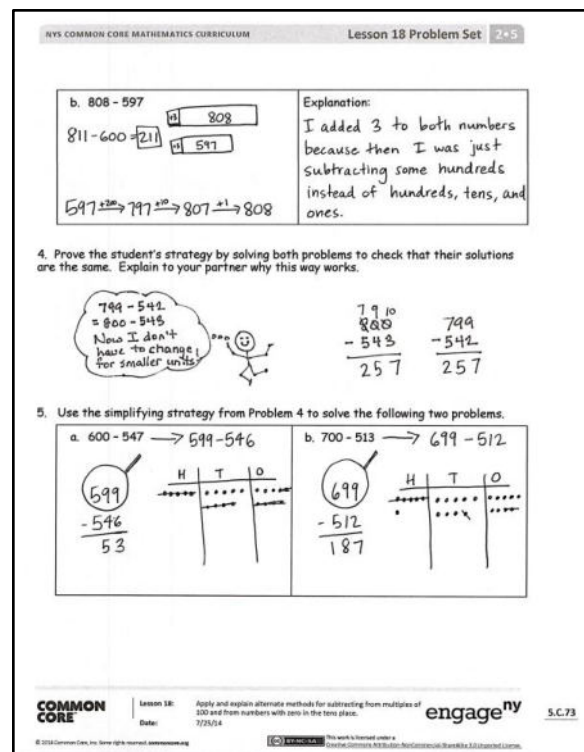 NYS COMMON CORE MATHEMATICS CURRICULUM Lesson 18 Problem Set 2•5
b. 808 - 597
+3 808
811-600=211
+3 597
597 +200→ 797 +10→ 807 +1→ 808
Explanation:
I added 3 to both numbers
because then I was just
subtracting some hundreds
instead of hundreds, tens, and
ones.
4. Prove the student's strategy by solving both problems to check that their solutions
are the same. Explain to your partner why this way works.
799-542
= 800-543
Now I don't
have to change
for smaller units!
7 9 10
800
- 543
257
799
- 542
257
5. Use the simplifying strategy from Problem 4 to solve the following two problems.
a. 600 - 547 → 599-546
H T O
599
- 546
53
b. 700 - 513 → 699-512
H T O
699
- 512
187
COMMON
CORE
Lesson 18: Apply and explain alternate methods for subtracting from multiples of
100 and from numbers with zero in the tens place.
Date: 7/25/14
engageny
5.C.73
© 2014 Common Core, Inc. Some rights reserved. commoncore.org
(cc) BY-NC-SA
This work is licensed under a
Creative Commons Attribution-NonCommercial-ShareAlike 3.0 Unported License.